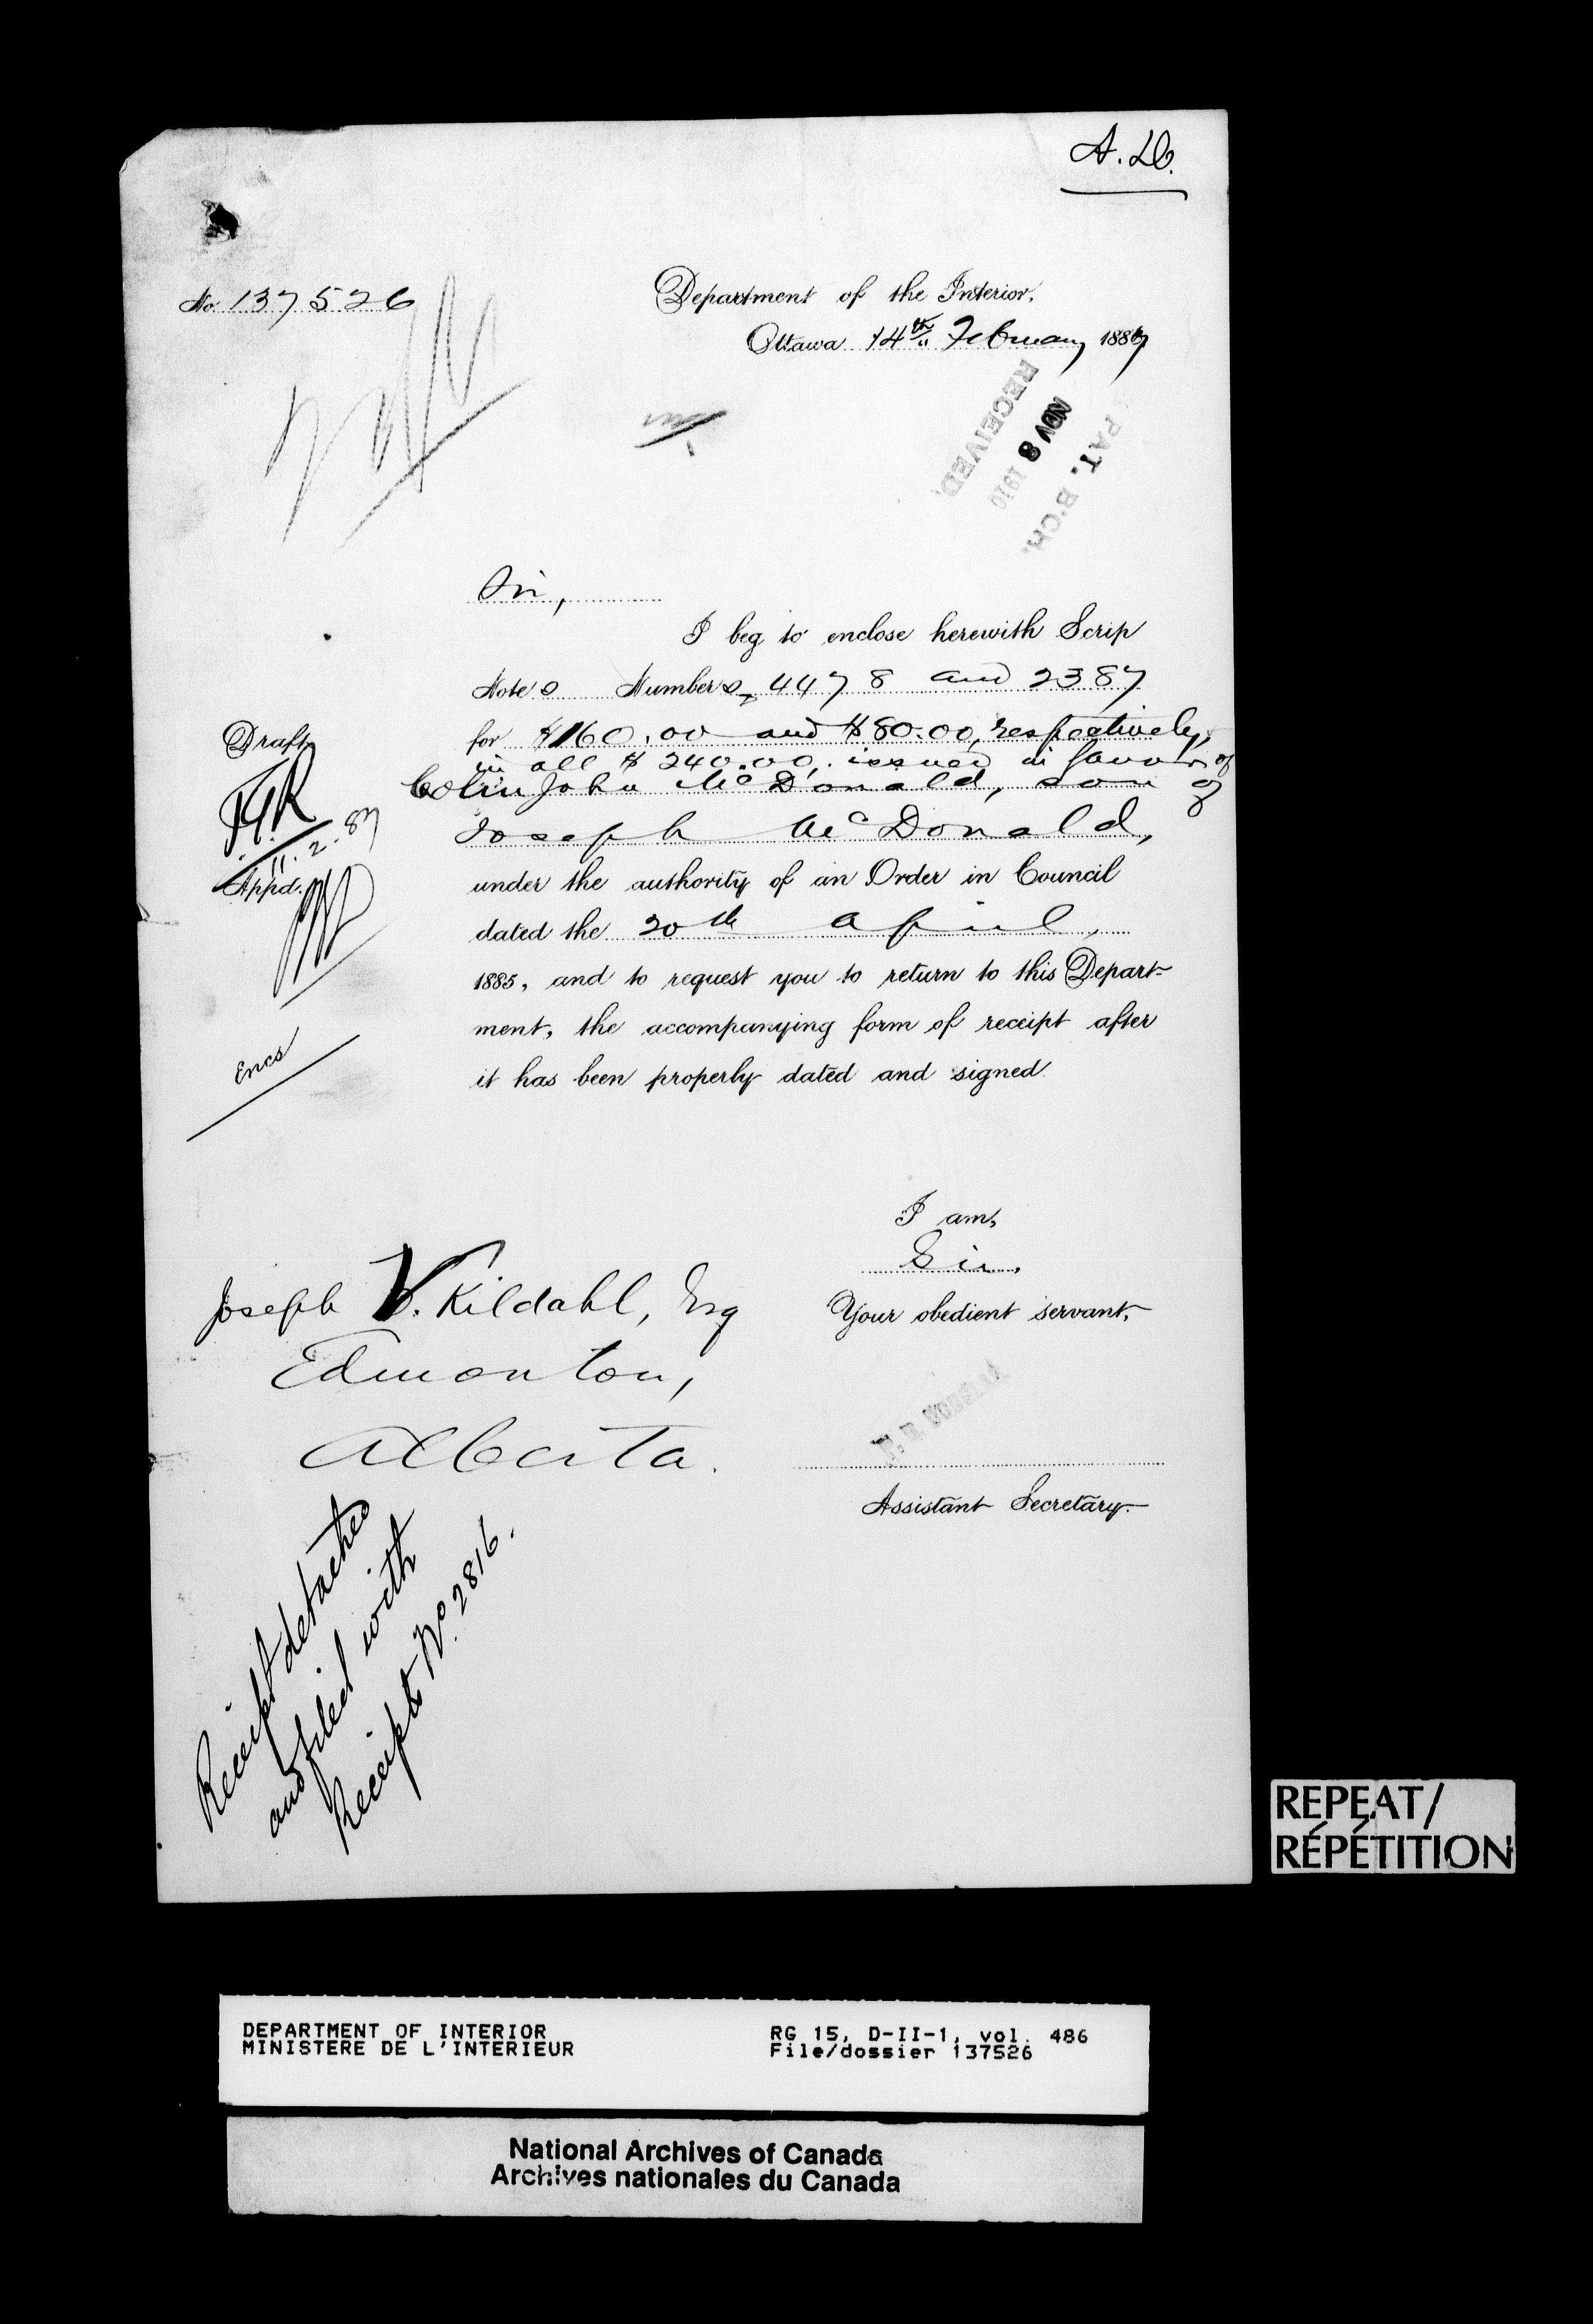 A. D.
No. 137526
Department of the Interior,
Ottawa 14th February 1887
RECEIVED
NOV 8 1910
PAT. B'CH.
Sir,
I beg to enclose herewith Scrip
Notes Numbers, 4478 and 2387
for $160.00 and $80.00, respectively,
in all $240.00, issued in favor of
Colin John McDonald, son of
Joseph McDonald,
under the authority of an Order in Council
dated the 20th April,
1885, and to request you to return to this Depart-
ment, the accompanying form of receipt after
it has been properly dated and signed.
Draft
11.2.87
Appd.
Encs
I am,
Sir,
Your obedient servant,
Assistant Secretary.
Joseph V. Kildahl, Esq
Edmonton,
Alberta.
Receipt detached
and filed with
Receipt No. 2816.
REPEAT/
RÉPÉTITION
DEPARTMENT OF INTERIOR
MINISTERE DE L'INTERIEUR
RG 15, D-II-1, vol. 486
File/dossier 137526
National Archives of Canada
Archives nationales du Canada